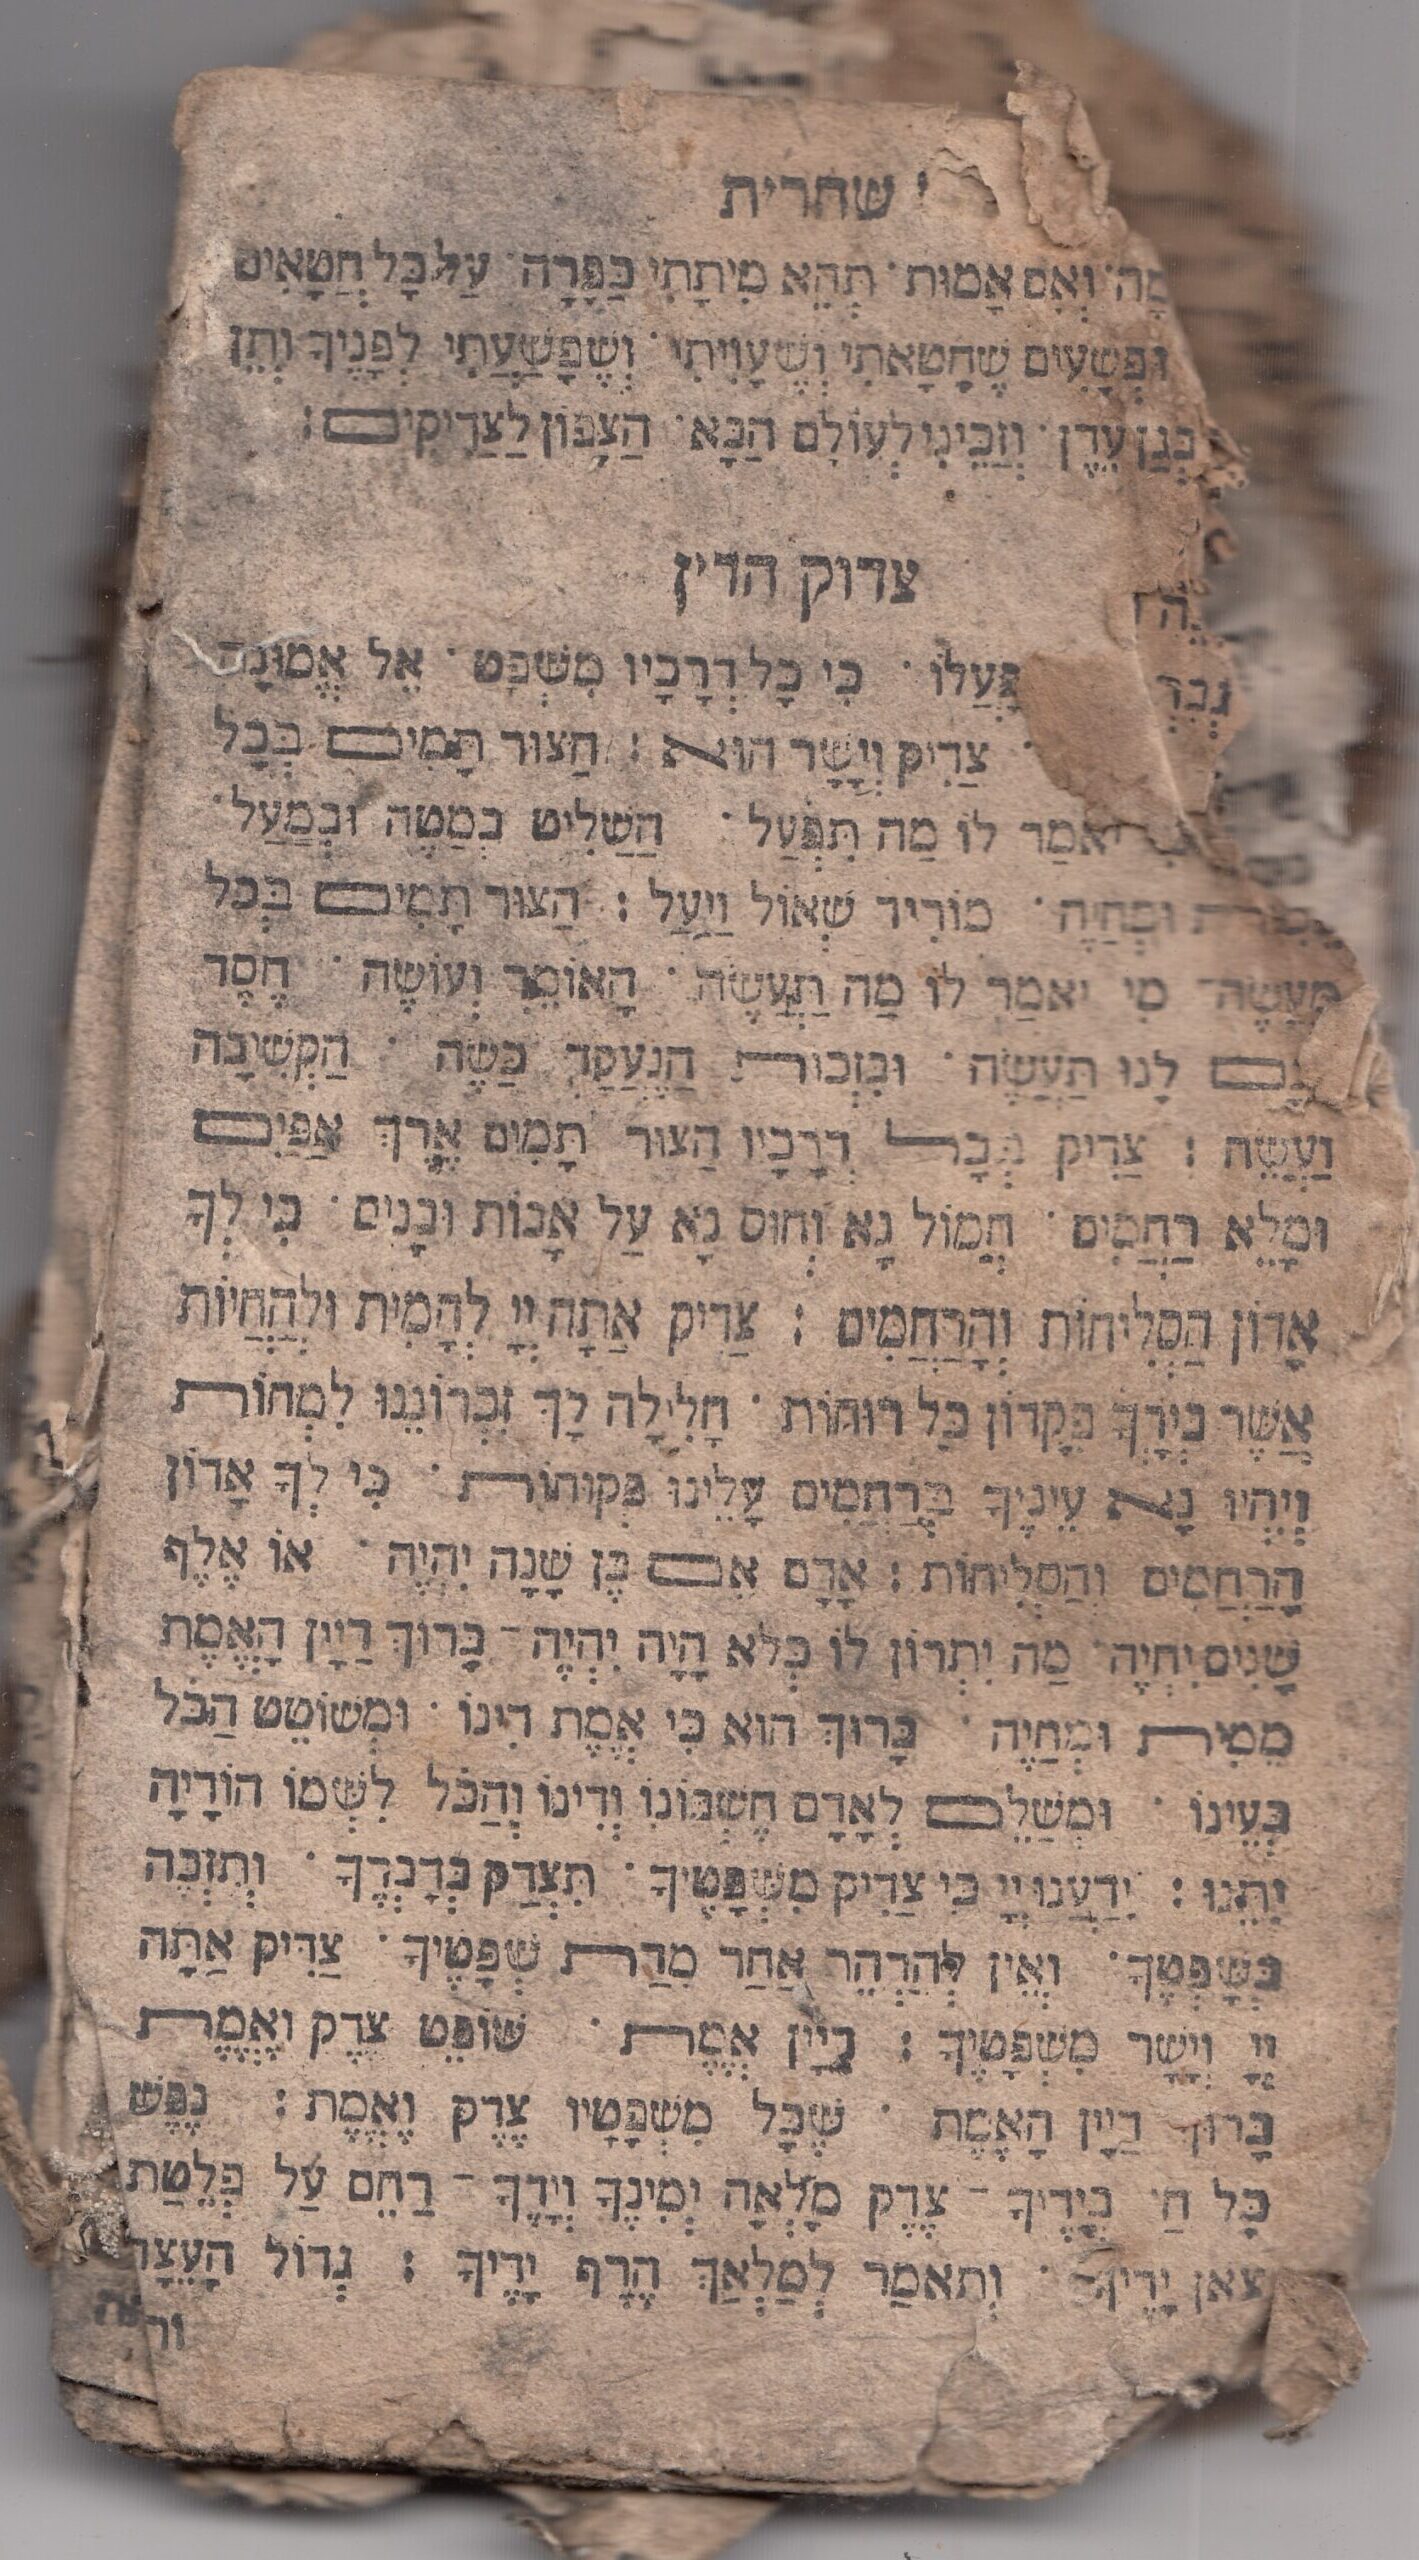 שחרית
מָה· וְאִם אָמוּת· תְּהֵא מִיתָתִי כַּפָּרָה· עַל כָּל חֲטָאִים
וּפְשָׁעִים שֶׁחָטָאתִי וְשֶׁעָוִיתִי· וְשֶׁפָּשַׁעְתִּי לְפָנֶיךָ וְתֵן
בְּגַן עֵדֶן· וְזַכֵּינִי לְעוֹלָם הַבָּא· הַצָפוּן לַצַדִיקִים:
צדוק הדין
פָּעֳלוֹ· כִּי כָל דְרָכָיו מִשְׁפָּט· אֵל אֱמוּנָה
צַדִיק וְיָשָׁר הוּא: הַצוּר תָּמִים בְּכָל
יֹאמַר לוֹ מַה תִּפְעַל· הַשַׁלִיט בְּמַטָה וּבְמַעַל·
מֵמִית וּמְחַיֶה· מוֹרִיד שְׁאוֹל וַיָעַל: הַצוּר תָמִים בְּכל
מַעֲשֶׂה· מִי יֹאמַר לוֹ מַה תַּעֲשֶׂה· הָאוֹמֵר וְעוֹשֶׂה· חֶסֶד
לָנוּ תַּעֲשֶׂה· וּבִזְכוּת הַנֶעֱקַד כַּשֶׂה· הַקְשִׁיבָה
וַעֲשֵׂה: צַדִיק בְּכָל דְרָכָיו הַצוּר תָּמִים אֶרֶךְ אַפַּיִם
וּמָלֵא רַחֲמִים· חֲמוֹל נָא וְחוּס נָא עַל אָבוֹת וּבָנִים· כִּי לְךָ
אָדוֹן הַסְלִיחוֹת וְהָרַחֲמִים: צַדִיק אַתָּה יְיָ לְהָמִית וּלְהַחֲיוֹת
אֲשֶׁר בְּיָדְךָ פִּקָדוֹן כָּל רוּחוֹת· חָלִילָה לָךְ זִכְרוֹנֵנוּ לִמְחוֹת
וְיִהְיוּ נָא עֵינֶיךָ בְּרַחֲמִים עָלֵינוּ פְּקוּחוֹת· כִּי לְךָ אָדוֹן
הָרַחֲמִים וְהַסְלִיחוֹת: אָדָם אִם בֶּן שָׁנָה יִהְיֶה· אוֹ אֶלֶף
שָׁנִים יִחְיֶה· מַה יִתְרוֹן לוֹ כְּלֹא הָיָה יִהְיֶה· בָּרוּךְ דַיָין הָאֱמֶת
מֵמִית וּמְחַיֶה· בָּרוּךְ הוּא כִּי אֱמֶת דִינוֹ· וּמְשׁוֹטֵט הַכֹּל
בְּעֵינוֹ· וּמְשַׁלֵם לְאָדָם חֶשְׁבּוֹנוֹ וְדִינוֹ וְהַכֹּל לִשְׁמוֹ הוֹדָיָה
יִתֵּנוּ: יָדַעְנוּ יְיָ כִּי צַדִיק מִשְׁפָּטֶיךָ· תִּצְדַק בְּדָבְרֶךָ· וְתִזְכֶּה
בְּשָׁפְטֶךָ· וְאֵין לְהַרְהֵר אַחַר מִדַת שְׁפָּטֶיךָ· צַדִיק אַתָּה
יְיָ וְיָשָׁר מִשְׁפָּטֶיךָ: דַיָין אֱמֶת· שׁוֹפֵט צֶדֶק וֶאֱמֶת
בָּרוּךְ דַיָין הָאֱמֶת· שֶׁכָּל מִשְׁפָּטָיו צֶדֶק וֶאֱמֶת: נֶפֶשׁ
כָּל חַי בְּיָדֶיךָ· צֶדֶק מָלְאָה יְמִינְךָ וְיָדֶךָ· רַחֵם עַל פְּלֵטַת
צֹאן יָדֶיךָ· וְתֹאמַר לְמַלְאָךְ הֶרֶף יָדֶיךָ: גְדוֹל הָעֵצָה